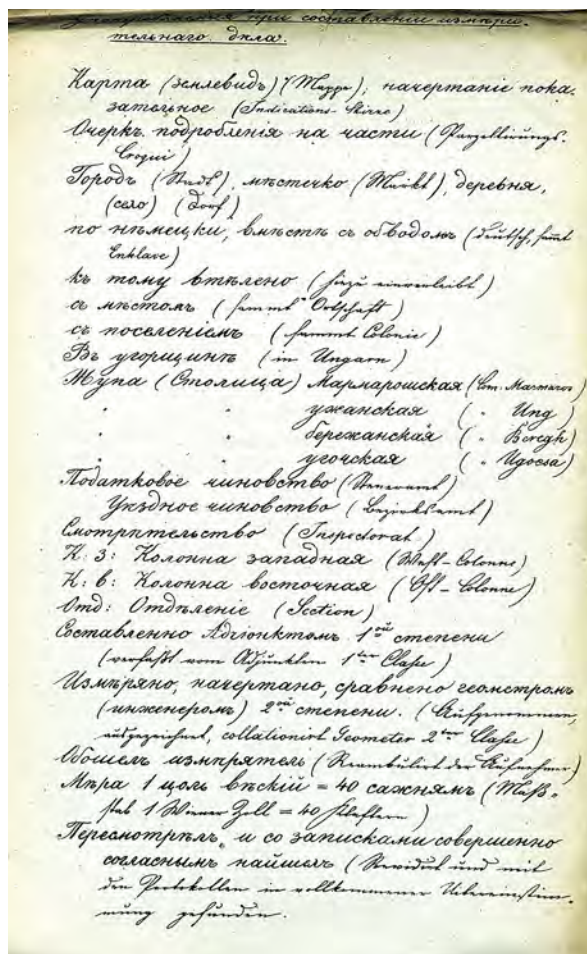 при составленіи измѣри-
тельнаго дѣла.
Карта (землевидъ) (Mappe), начертаніе пока-
зательное (Indications-Skizze)
Очеркъ подробленія на части (Parzellirungs-
Croqui)
Городъ (Stadt), мѣстечко (Markt), деревня,
(село) (Dorf)
по нѣмецки, вмѣстѣ съ обводомъ (deutsch, sammt
Enklave)
къ тому втѣлено (hiezu einverleibt)
съ мѣстомъ (sammt Ortschaft)
съ поселеніемъ (sammt Colonie)
Въ угорщинѣ (in Ungarn)
Жупа (Столица) Мармарошская (Com. Marmaros)
" " ужанская ( " Ung)
" " бережанская ( " Beregh)
" " угочская ( " Ugocsa)
Податковое чиновство (Steueramt)
Уѣздное чиновство (Bezirksamt)
Смотрительство (Inspectorat)
К: З: Колонна западная (West-Colonne)
К: в: Колонна восточная (Ost-Colonne)
Отд: Отдѣленіе (Section)
Составленно Адіюнктомъ 1ой степени
(verfaßt vom Adjunkten 1ter Classe)
Измѣряно, начертано, сравнено геометромъ
(инженеромъ) 2ой степени. (Aufgenommen,
ausgezeichnet, collationirt Geometer 2ter Classe)
Обошелъ измѣрятель (Reambulirt der Aufnehmer)
Мѣра 1 цоль вѣскій = 40 сажнямъ (Maß-
stab 1 Wiener Zoll = 40 Klaftern)
Пересмотрѣлъ и со записками совершенно
согласнымъ найшолъ (Revidirt und mit
den Protokollen in vollkommener Uibereinstim-
mung gefunden.